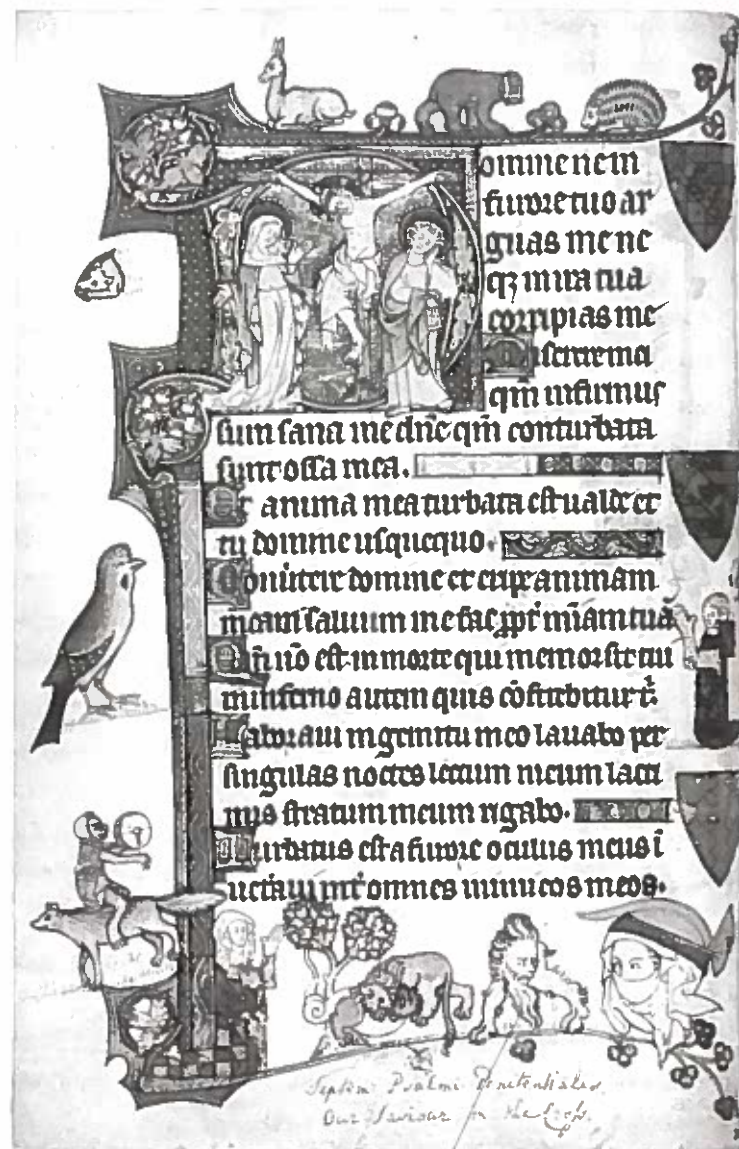 omine ne in
furore tuo ar
guas me ne
qꝫ in ira tua
corripias me
Miserere mei
qm̄ infirmus
sum sana me dn̄e qm̄ conturbata
sunt ossa mea.
Et anima mea turbata est ualde et
tu domine usquequo.
Conuertere domine et eripe animam
meam saluum me fac ꝓpt̄ mīam tuā
Qm̄ nō est in morte qui memor sit tui
in inferno autem quis cōfitebitur t̄.
Laboraui in gemitu meo lauabo per
singulas noctes lectum meum lacri
mis stratum meum rigabo.
Turbatus est a furore oculus meus ī
ueteraui int̄ omnes inimicos meos.
Septem Psalmi Penitentiales.
Our Saviour on the Cross.